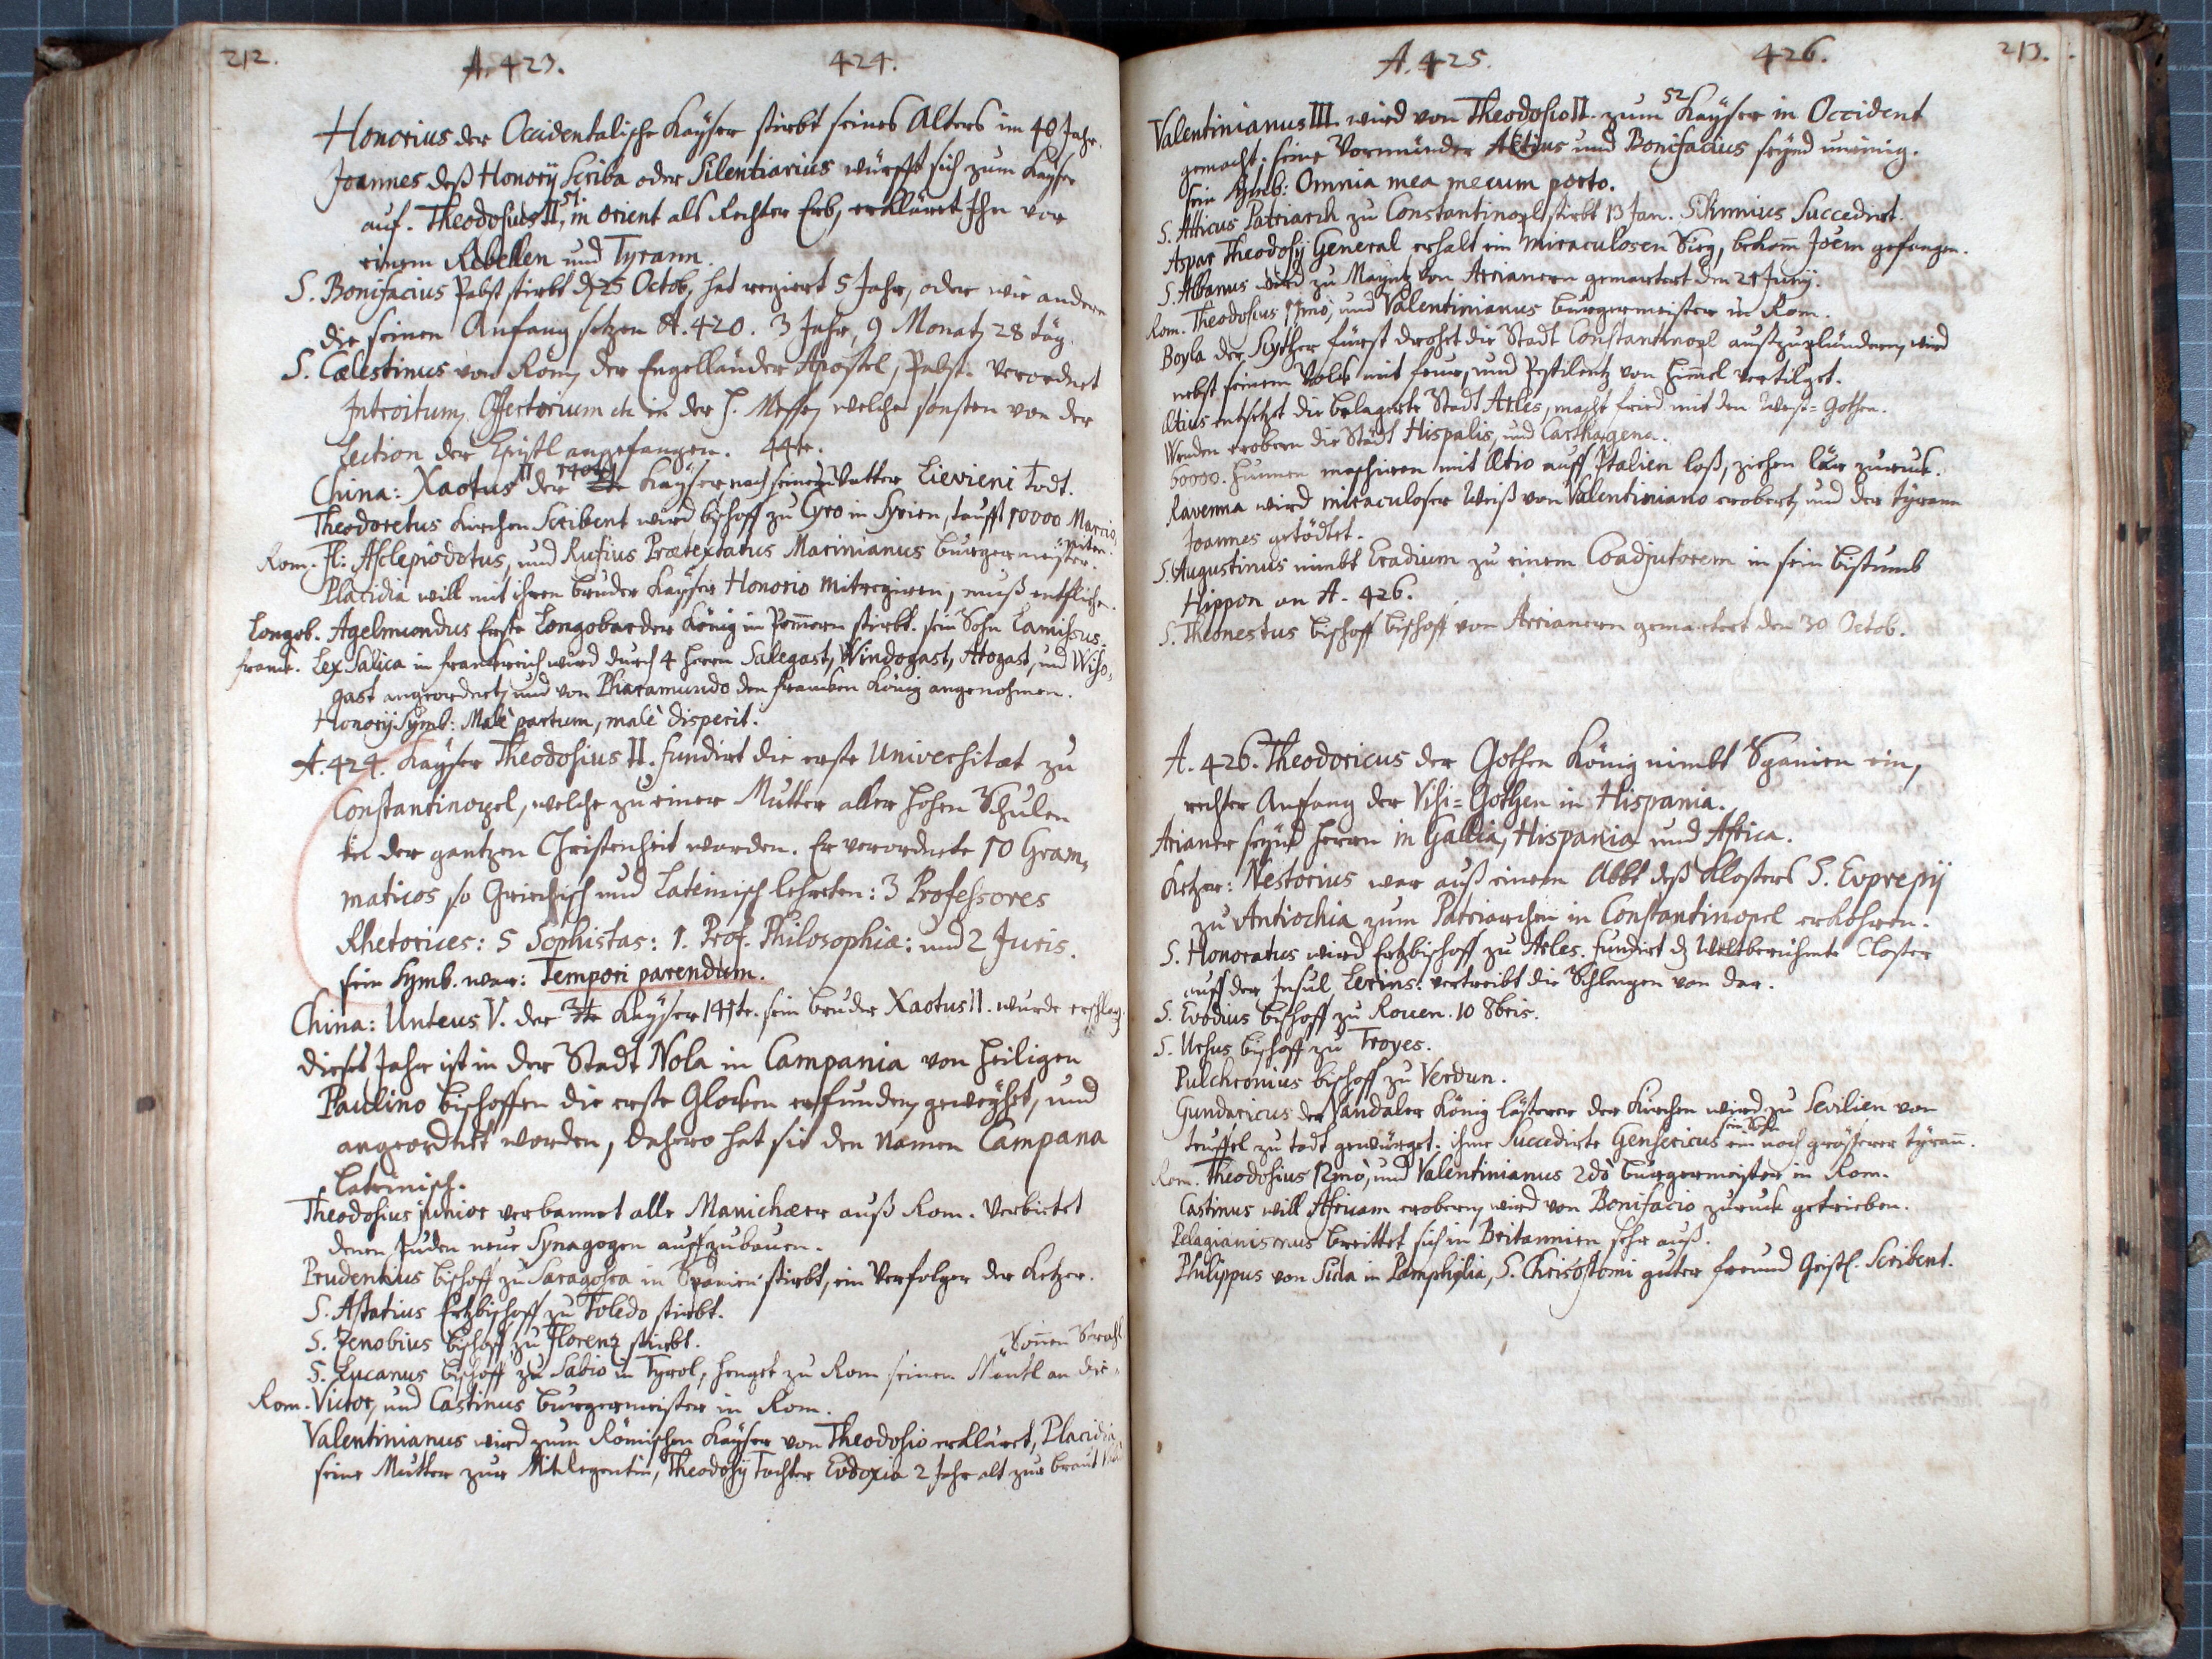 212.
A. 423. 424.
Honorius der Occidentalische Kayser stirbt seines Alters im 40 Jahr.
Joannes deß Honorij Scriba oder Silentiarius würfft sich zum Kayser
auf. Theodosius II, 51. in Orient als Rechter Erb, erkläret Ihn vor
einem Rebellen und Tyrann.
S. Bonifacius Pabst stirbt dz 25 Octob, hat regiert 5 Jahr, oder wie andere
die seinen Anfang setzen A. 420. 3 Jahr, 9 Monat, 28 täg.
S. Cælestinus von Rom, der Engelländer Apostel, Pabst. Verordnet
Introitum, Offertorium etc in der H. Meß, welche sonsten von der
Lection der Epistl angefangen. 44te.
China: Xaotus II der 140te Kayser, nach seinem Vatter Lievieni Todt.
Theodoretus Kirchen Scribent wird bischoff zu Cyro in Syrien, taufft 10000 Marcio,
niten.
Rom. Fl: Asclepiodotus, und Rufius Prætextatus Marinianus burgermeister.
Placidia will mit ihren bruder Kayser Honorio mitregiren, muß entfliehen.
Longob. Agelmundus Erste Longobarder König in Pomern stirbt. sein Sohn Lamissus.
franck. Lex Salica in franckreich wird durch 4 herrn Salegast, Windogast, Atogast, und Wiso,
gast angeordnet, und von Pharamundo den francken König angenohmen.
Honorij Symb: Malè partum, malè disperit.
A. 424. Kayser Theodosius II. fundirt die erste Universitæt zu
Constantinopel, welche zu einer Mutter aller hohen Schulen
in der gantzen Christenheit worden. Er verordnete 10 Gram,
maticos so Griechisch und Lateinisch lehrten: 3 Professores
Rhetorices: 5 Sophistas: 1. Prof. Philosophiæ: und 2 Juris.
sein Symb. war: Tempori parendum.
China: Unteus V. der 3te Kayser 141te. sein bruder Xaotus II. wurde erschlag.
dieses Jahr ist in der Stadt Nola in Campania von heiligen
Paulino bischoffen die erste Glocken erfunden, geweyhet, und
angeordnet worden, dahero hat sie den Namen Campana
Lateinisch.
Theodosius junior verbannet alle Manichæer auß Rom. Verbietet
denen Juden neue Synagogen auffzubauen.
Prudentius bischoff zu Saragossa in Spanien stirbt, ein Verfolger der Ketzer.
S. Astatius Ertzbischoff zu Toledo stirbt.
S. Zenobius bischoff zu Florenz stirbt.
Sonnen Strahl
S. Lucanus bischoff zu Sabio in Tyrol, henget zu Rom seinen Mantl an die
Rom. Victor, und Castinus burgermeister in Rom.
Valentinianus wird zum Römischen Kayser von Theodosio erkläret, Placidia
seine Mutter zur Mitregentin, Theodosij Tochter Eudoxia 2 Jahr alt zur braut
A. 425. 426. 213.
Valentinianus III. wird von Theodosio II. zum 52 Kayser in Occident
gemacht; seine Vormünder Aetius und Bonifacius seynd uneinig.
sein Symb: Omnia mea mecum porto.
S. Atticus Patriarch zu Constantinopl stirbt 13 Jan. Sisinnius Succedirt.
Aspar Theodosij General erhalt ein miraculosen Sieg, bekom Joem gefangen.
S. Albanus wird zu Mayntz von Arrianern gemartert den 21 Junij.
Rom. Theodosius 11mo, und Valentinianus burgermeister in Rom.
Boyla der Scyther Fürst drohet die Stadt Constantinopl außzuplündern, wird
nebst seinem Volk mit feur, und Pestilentz von himel vertilget.
Ætius entsetzet die belagerte Stadt Arles, macht fried mit den West-Gothen.
Wenden erobern die Städt Hispalis, und Carthagena.
60000. Hunnen maschiren mit Ætio auff Italien loß, ziehen lär zuruck.
Ravenna wird miraculoser Weiß von Valentiniano erobert, und der tyrann
Joannes getödtet.
S. Augustinus nimbt Eradium zu einem Coadjutorem in sein bistumb
Hippon an A. 426.
S. Theonestus bischoff bischoff von Arrianern gemartert den 30 Octob.
A. 426. Theodoricus der Gothen König nimbt Spanien ein,
rechter Anfang der Visi-Gothen in Hispania.
Arianer seynd herrn in Gallia, Hispania und Africa.
Ketzer: Nestorius war auß einem Abbt deß Klosters S. Euprepij
zu Antiochia zum Patriarchen in Constantinopel erkohren.
S. Honoratus wird Ertzbischoff zu Arles. fundirt dz Weltberühmte Closter
auff der Insul Lerins: vertreibt die Schlangen von dar.
S. Evodius bischoff zu Rouen. 10 8bris.
S. Ursus bischoff zu Troyes.
Pulchronius bischoff zu Verdun.
Gundaricus der Vandaler König lästerer der Kirchen wird zu Sevilien von
teuffel zu todt gewürget: ihme Succedirte Gensericus sein Sohn ein noch größerer tyrann.
Rom. Theodosius 12mò, und Valentinianus 2dò burgermeister in Rom.
Castinus will Africam erobern, wird von Bonifacio zuruck getrieben.
Pelagianismus breittet sich in Britannien sehr auß.
Philippus von Sida in Pamphylia, S. Chrisostomi guter freund Geistl. Scribent.